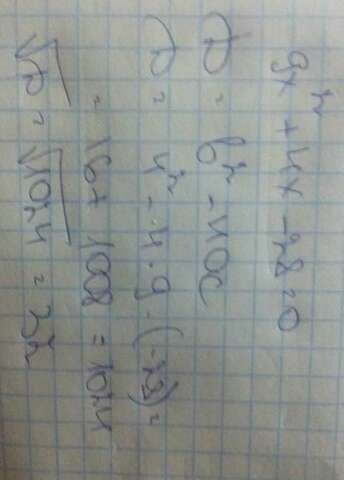 9x² + 4x - 28 = 0
D = b² - 4ac
D = 4² - 4 · 9 · (-28) =
= 16 + 1008 = 1024
√D = √1024 = 32